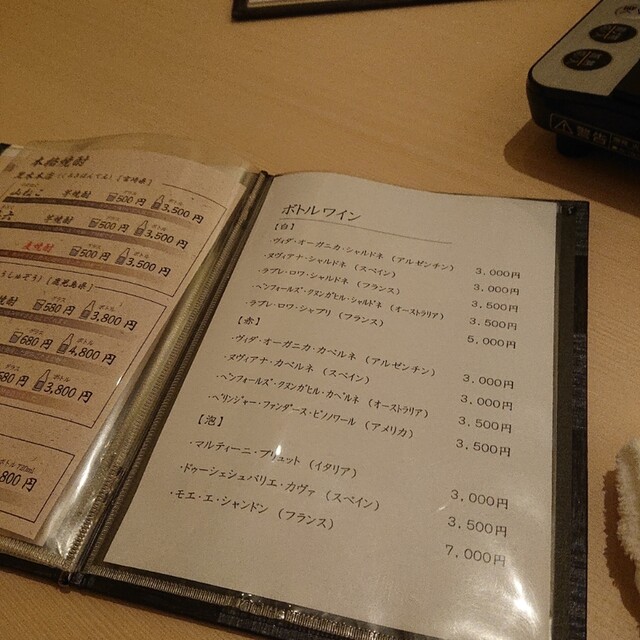 本格焼酎
黒木本店(くろきほんてん)[宮崎県]
山ねこ 芋焼酎 グラス 500円 ボトル 3,500円
芋焼酎 グラス 500円 ボトル 3,500円
麦焼酎 グラス 500円 ボトル 3,500円
うしゅぞう)[鹿児島県]
焼酎 グラス 580円 ボトル 3,800円
グラス 680円 ボトル 4,800円
580円 ボトル 3,800円
ボトル720ml
800円
ボトルワイン
【白】
・ヴィダ・オーガニカ・シャルドネ (アルゼンチン) 3,000円
・ヌヴィアナ・シャルドネ (スペイン) 3,000円
・ラブレ・ロワ・シャルドネ (フランス) 3,500円
・ペンフォールズ・クヌンガヒル・シャルドネ (オーストラリア) 3,500円
・ラブレ・ロワ・シャブリ (フランス) 5,000円
【赤】
・ヴィダ・オーガニカ・カベルネ (アルゼンチン) 3,000円
・ヌヴィアナ・カベルネ (スペイン) 3,000円
・ペンフォールズ・クヌンガヒル・カベルネ (オーストラリア) 3,500円
・ベリンジャー・ファンダース・ピノノワール (アメリカ) 3,500円
【泡】
・マルティーニ・ブリュット (イタリア) 3,000円
・ドゥーシェ・シュバリエ・カヴァ (スペイン) 3,500円
・モエ・エ・シャンドン (フランス) 7,000円
警告